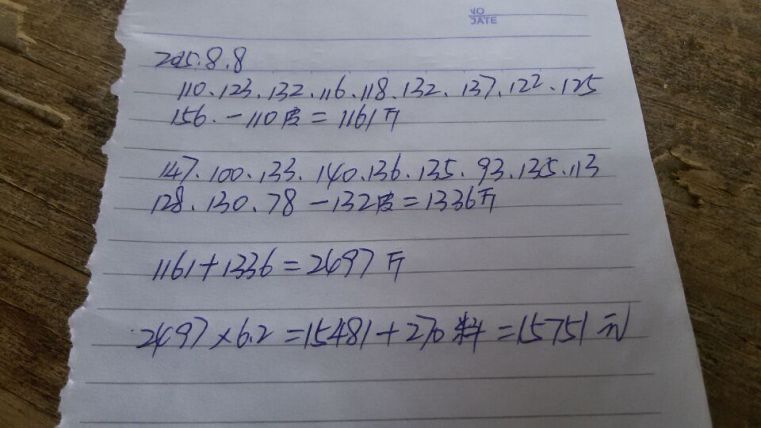 NO
DATE
2015.8.8
110.123.132.116.118.132.137.122.125
156.-110皮=1161斤
147.100.133.140.136.135.93.135.113
128.130.78-132皮=1336斤
1161+1336=2497斤
2497×6.2=15481+270料=15751元